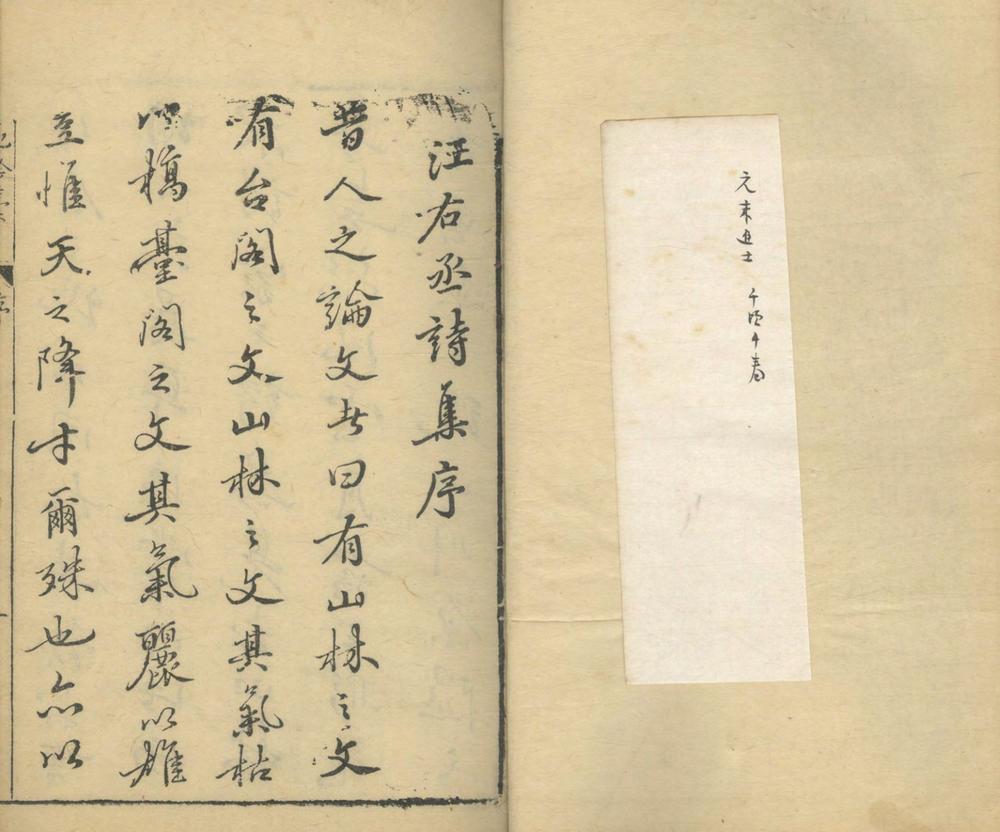 元末進士 千頃
汪右丞詩集序
昔人之論文者曰有山林之文
有台閣之文山林之文其氣枯
以槁臺閣之文其氣麗以雄
豈惟天之降才爾殊也亦以